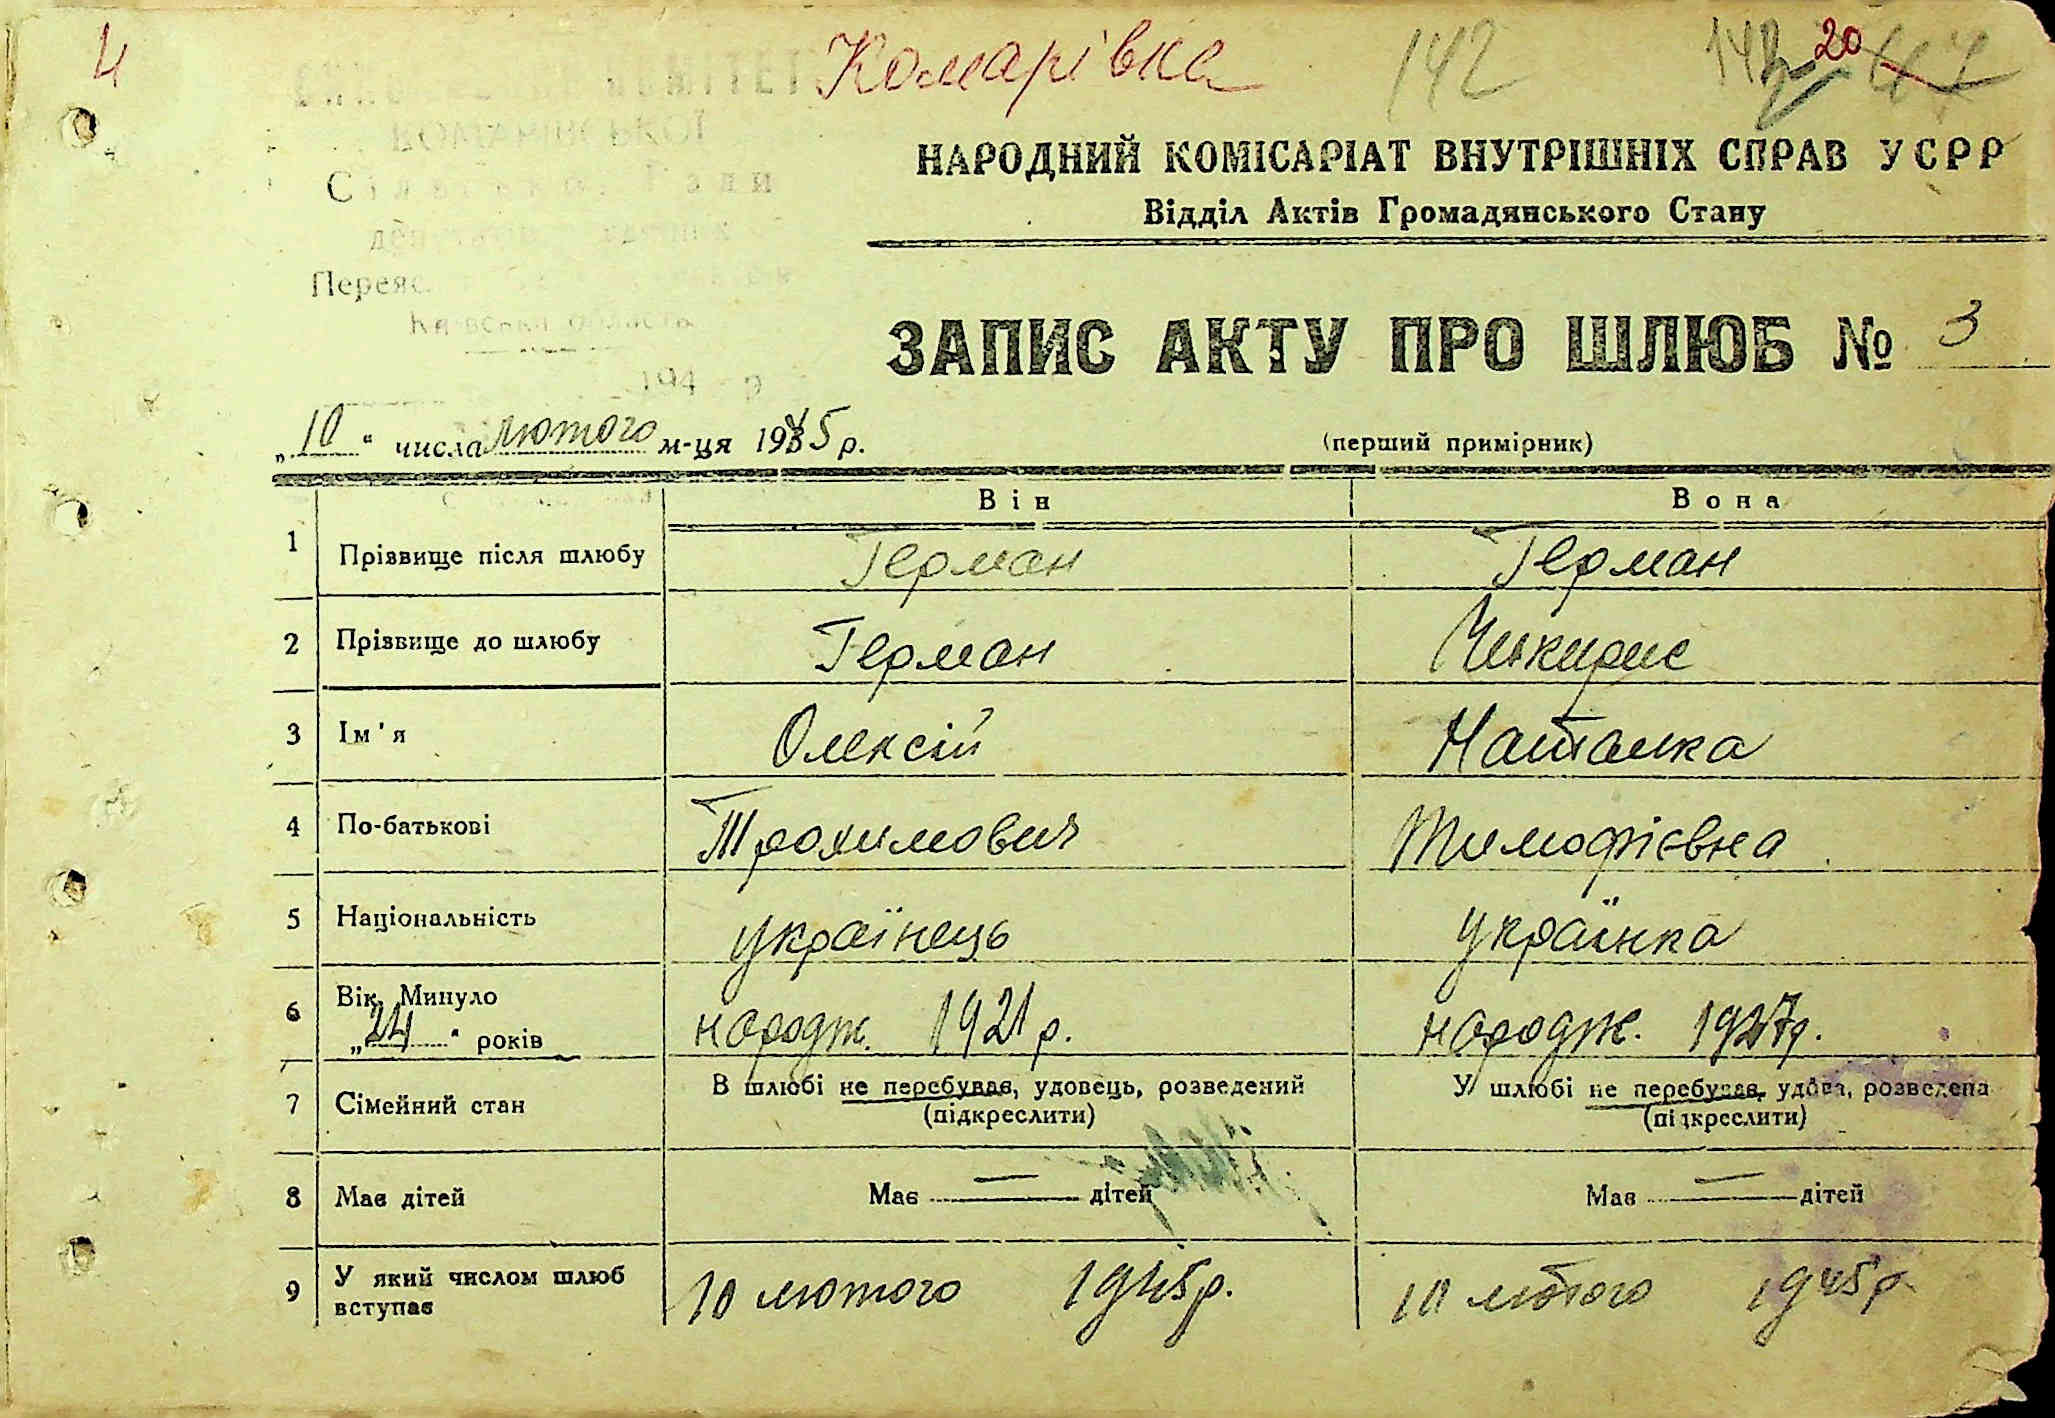 4
Комарівка
142
142 20
КОМІТЕТ
Переяс
Київська область
194 р
НАРОДНИЙ КОМІСАРІАТ ВНУТРІШНІХ СПРАВ УСРР
Відділ Актів Громадянського Стану
ЗАПИС АКТУ ПРО ШЛЮБ № 3
„10" числа лютого м-ця 1945 р.
(перший примірник)
Він Вона
1 Прізвище після шлюбу Герман Герман
2 Прізвище до шлюбу Герман Чикирис
3 Ім'я Олексій Наталка
4 По-батькові Трохимович Тимофієвна
5 Національність українець українка
6 Вік. Минуло „24" років народж. 1921 р. народж. 1927р.
7 Сімейний стан В шлюбі не перебуває, удовець, розведений У шлюбі не перебуває, удова, розведена
(підкреслити) (підкреслити)
8 Має дітей Має — дітей Має — дітей
9 У який числом шлюб вступає 10 лютого 1945р. 10 лютого 1945р